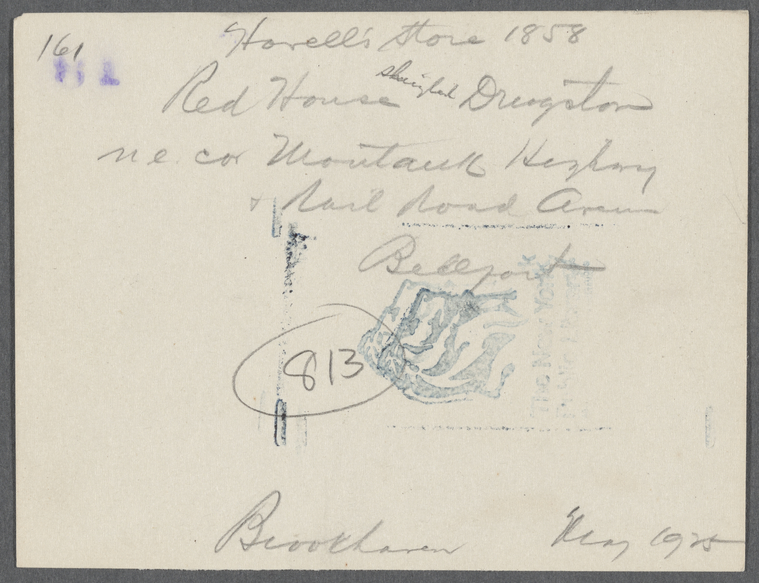 161
Howell's Store 1858
Red House shingled Drugstore
n.e. cor Montauk Highway
& Rail Road Avenue
Bellport
The New York
813
Brookhaven May 1925